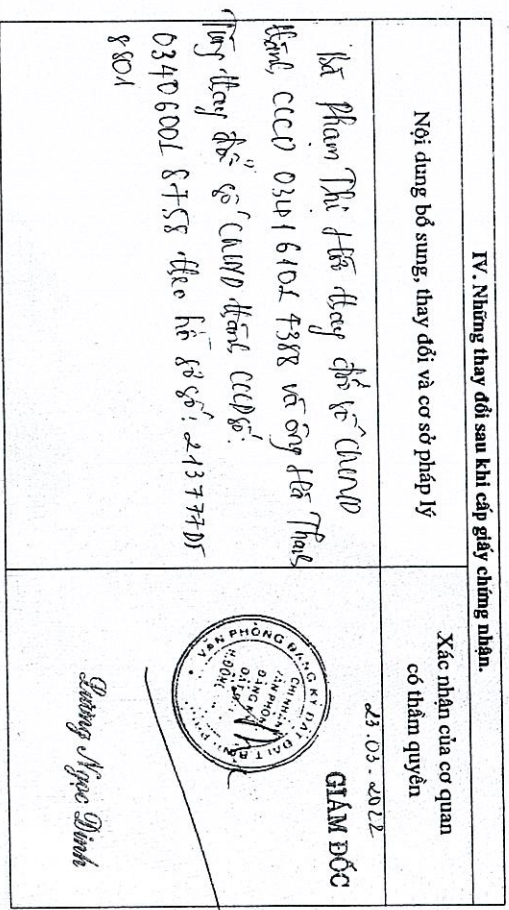 IV. Những thay đổi sau khi cấp giấy chứng nhận.
Nội dung bổ sung, thay đổi và cơ sở pháp lý
Xác nhận của cơ quan
có thẩm quyền
Bà Phạm Thị Hà thay đổi số CMND
thành CCCD 03416101 4388 và ông Hà Thanh
Tùng thay đổi số CMND thành CCCD số:
03406001 8758 theo hồ sơ số: 213777DS
8801
23.03.2022
GIÁM ĐỐC
VĂN PHÒNG ĐĂNG KÝ ĐẤT ĐAI T.
CHI NHÁNH
VĂN PHÒNG
ĐĂNG KÝ
ĐẤT ĐAI
Dương Ngọc Định